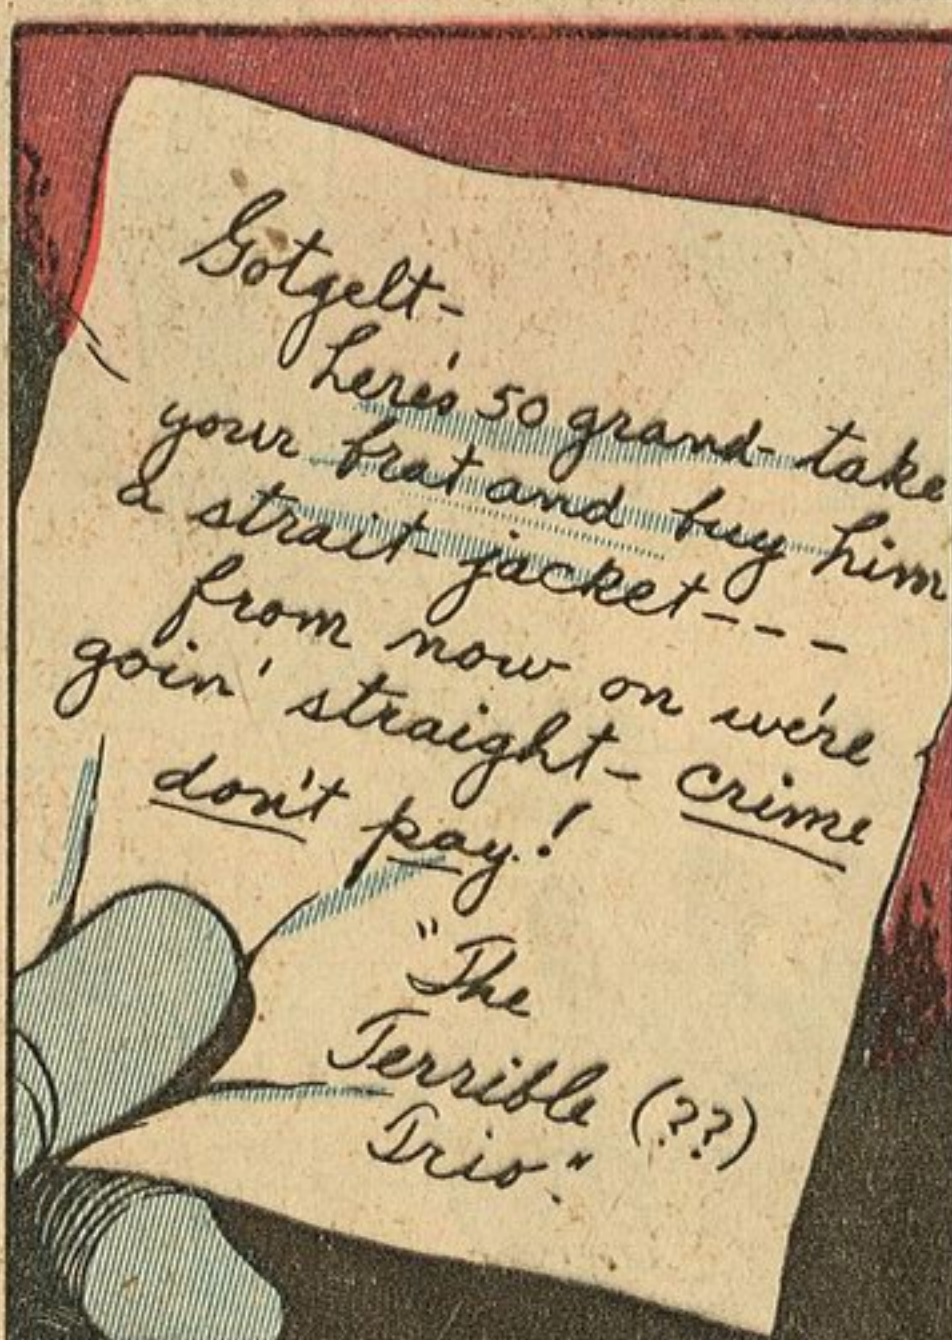 Gotgelt-
here's 50 grand- take
your brat and buy him
a strait-jacket----
from now on we're
goin' straight- crime
don't pay!
"The
Terrible (??)
Trio."